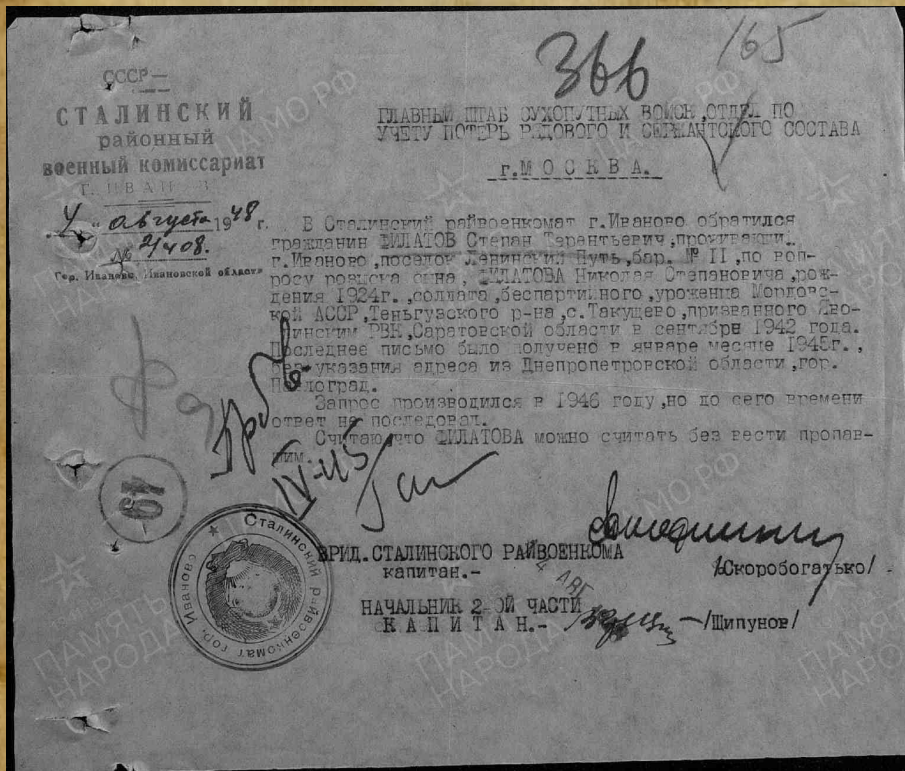 366
165
СССР—
СТАЛИНСКИЙ
районный
военный комиссариат
Г. ИВАНОВО
"4" августа 1948 г.
№ 2/408.
Гор. Иваново, Ивановской области
ГЛАВНЫЙ ШТАБ СУХОПУТНЫХ ВОЙСК, ОТДЕЛ ПО
УЧЕТУ ПОТЕРЬ РЯДОВОГО И СЕРЖАНТСКОГО СОСТАВА
г.МОСКВА.
В Сталинский райвоенкомат г.Иваново обратился
гражданин ФИЛАТОВ Степан Терентьевич, проживающий
г.Иваново, поселок Ленинский Путь, бар. № II, по воп-
росу розыска сына, ФИЛАТОВА Николая Степановича, рож-
дения 1924г., солдата, беспартийного, уроженца Мордовс-
кой АССР, Теньгузского р-на, с.Такушево, призванного
РВК, Саратовской области в сентябре 1942 года.
Последнее письмо было получено в январе месяце 1945г.,
без указания адреса из Днепропетровской области, гор.
Павлоград.
Запрос производился в 1946 году, но до сего времени
ответ не последовал.
Считаю, что ФИЛАТОВА можно считать без вести пропав-
шим.
IV-45
67
Сталинский райвоенкомат гор. Иваново
ВРИД.СТАЛИНСКОГО РАЙВОЕНКОМА
капитан.-
/Скоробогатько/
4 АВГ
НАЧАЛЬНИК 2-ОЙ ЧАСТИ
КАПИТАН.-
/Щипунов/
ПАМЯТЬ НАРОДА
ЦАМО РФ